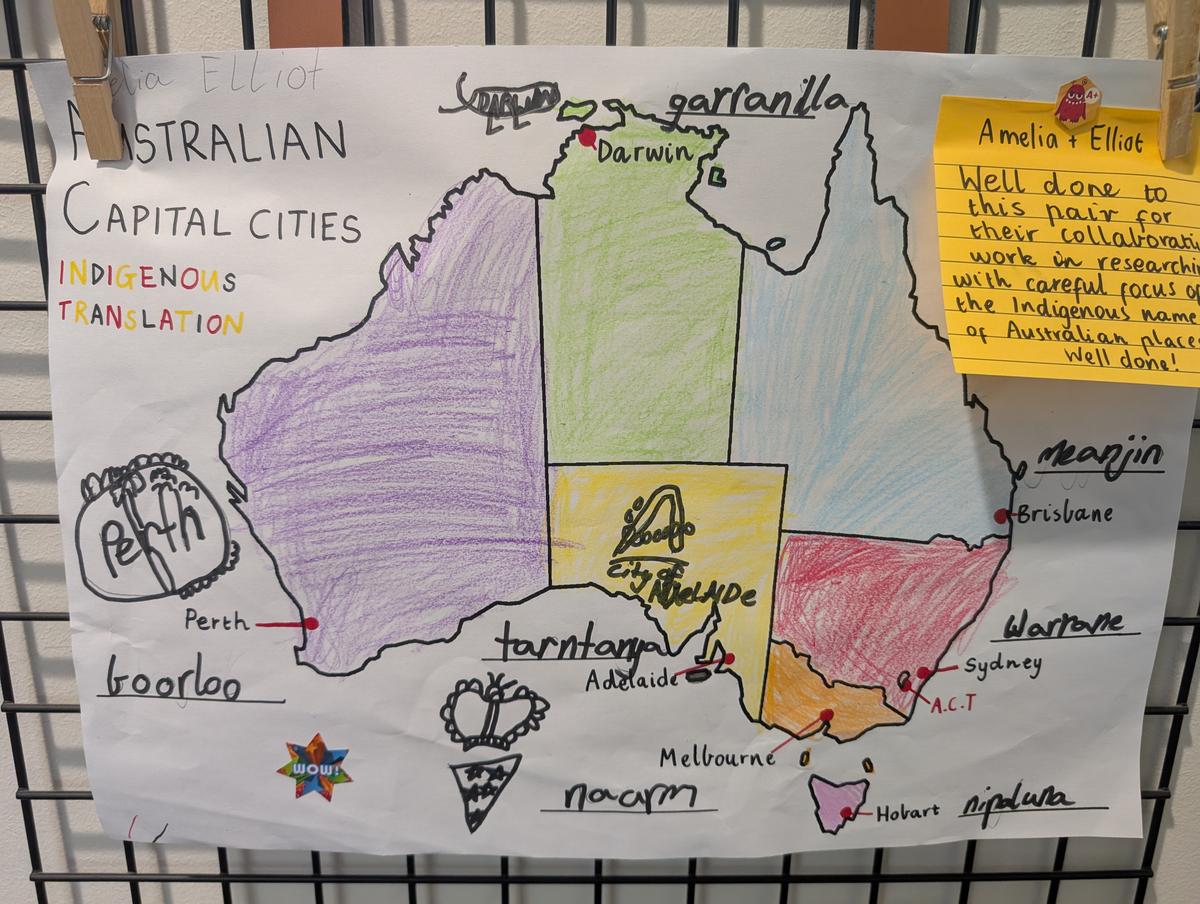 Elliot
AUSTRALIAN
CAPITAL CITIES
INDIGENOUS
TRANSLATION
DARWIN
garranilla
Darwin
Amelia + Elliot
A+
Well done to
this pair for
their collaborati
work in researchi
with careful focus o
the Indigenous name
of Australian place
Well done!
Meanjin
Brisbane
Perth
City of
ADELAIDE
Perth
Boorloo
tarntanya
Adelaide
Warrane
Sydney
A.C.T
WOW!
Melbourne
naarm
Hobart
nipaluna